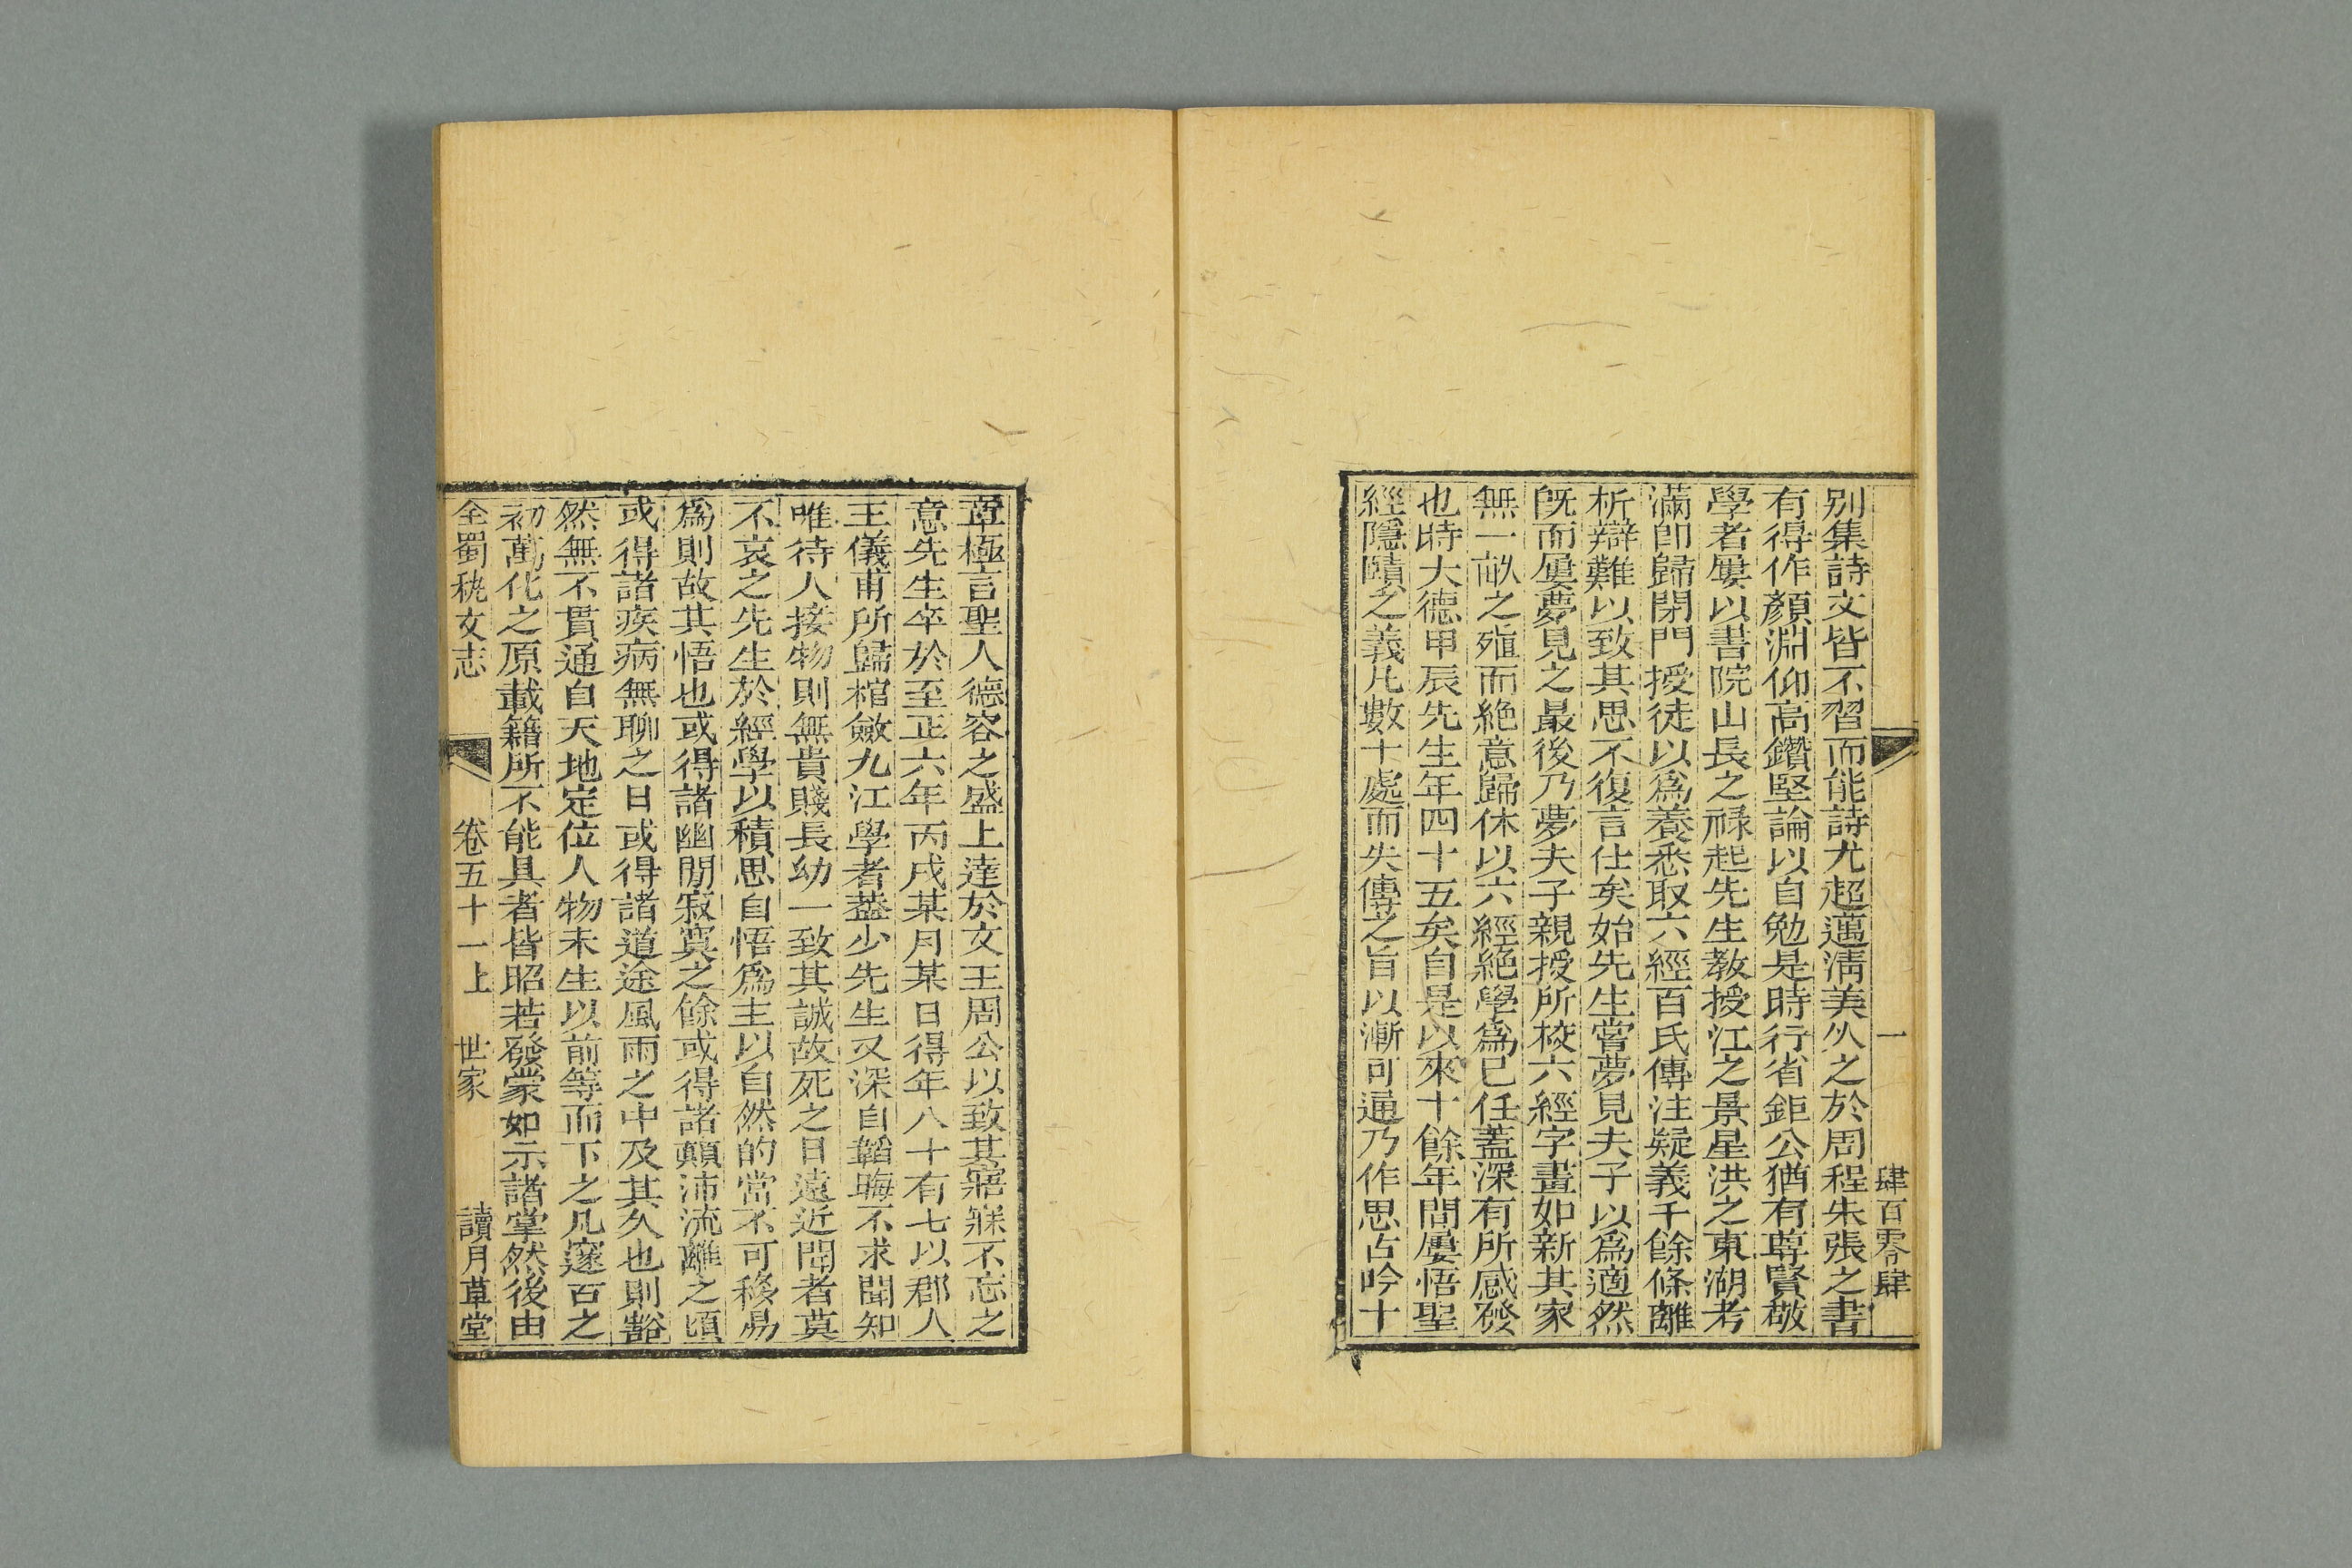 一　肆百零肆
别集詩文皆不習而能詩尤超邁淸美乆之於周程朱張之書
有得作顏淵仰高鑽堅論以自勉是時行省鉅公猶有尊賢敬
學者屢以書院山長之祿起先生教授江之景星洪之東湖考
滿卽歸閉門授徒以爲養悉取六經百氏傳注疑義千餘條離
析辯難以致其思不復言仕矣始先生嘗夢見夫子以爲適然
旣而屢夢見之最後乃夢夫子親授所校六經字畫如新其家
無一畝之殖而絕意歸休以六經絕學爲己任蓋深有所感發
也時大德甲辰先生年四十五矣自是以來十餘年間屢悟聖
經隱賾之義凡數十處而失傳之旨以漸可通乃作思古吟十
章極言聖人德容之盛上達於文王周公以致其寤寐不忘之
意先生卒於至正六年丙戌某月某日得年八十有七以郡人
王儀甫所歸棺斂九江學者葢少先生又深自韜晦不求聞知
唯待人接物則無貴賤長幼一致其誠故死之日遠近聞者莫
不哀之先生於經學以積思自悟爲主以自然的當不可移易
爲則故其悟也或得諸幽閒寂寞之餘或得諸顚沛流離之頃
或得諸疾病無聊之日或得諸道途風雨之中及其久也則豁
然無不貫通自天地定位人物未生以前等而下之凡邃古之
初萬化之原載籍所不能具者皆昭若發蒙如示諸掌然後由
全蜀秇文志　卷五十一上　世家　讀月草堂